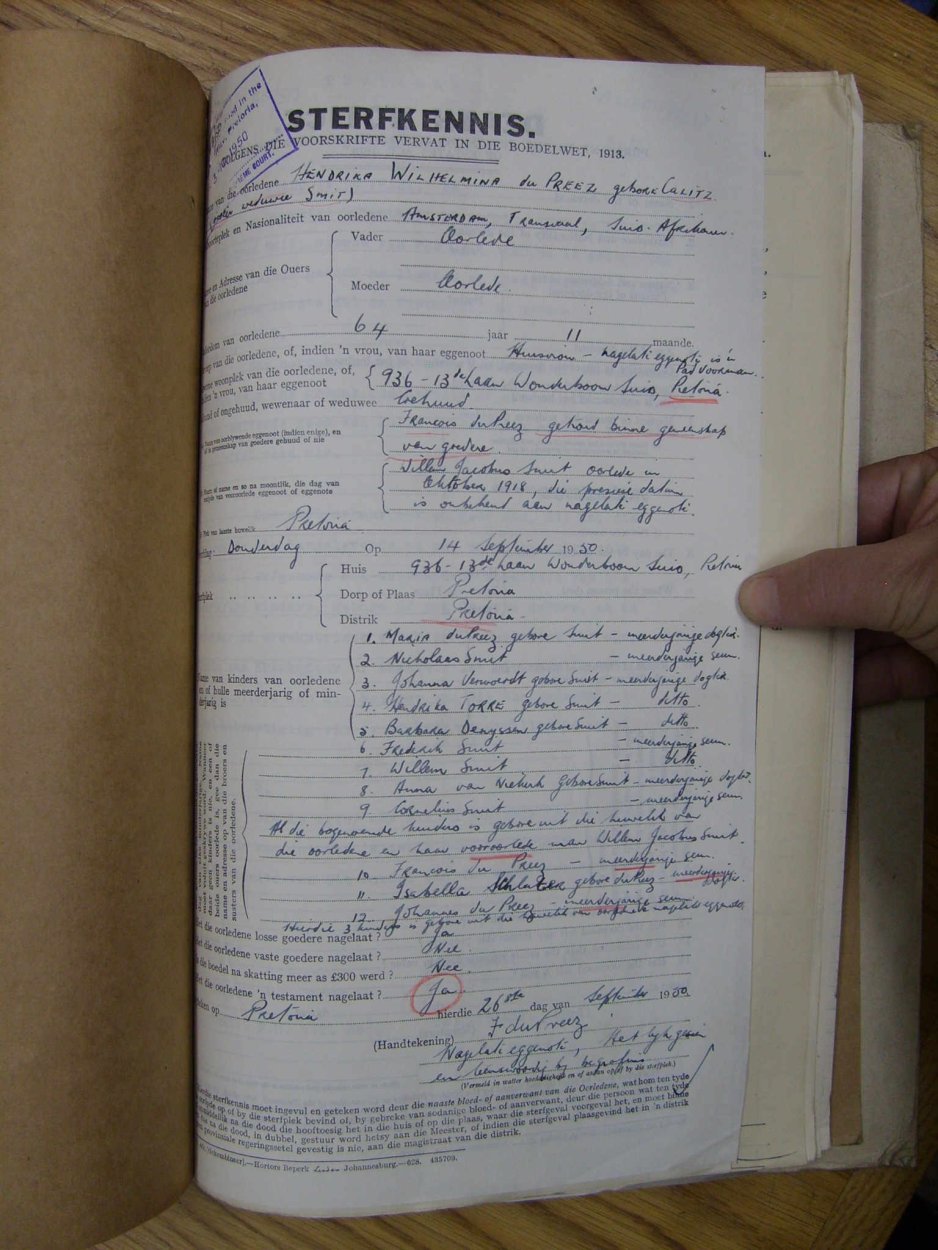 in the
Pretoria,
1950
COURT.
STERFKENNIS.
VOLGENS DIE VOORSKRIFTE VERVAT IN DIE BOEDELWET, 1913.
van die oorledene HENDRIKA WILHELMINA du PREEZ gebore CALITZ
weduwee Smit)
en Nasionaliteit van oorledene AMSTERDAM, Transvaal, Suid-Afrikaner.
en Adresse van die Ouers van die oorledene
Vader Oorlede
Moeder Oorlede.
van oorledene 64 jaar 11 maande.
van die oorledene, of, indien 'n vrou, van haar eggenoot Huisvrou – nagelate eggenoot is 'n
Pad Voorman.
woonplek van die oorledene, of, 'n vrou, van haar eggenoot 936 – 13de Laan Wonderboom Suid, Pretoria.
of ongehuud, wewenaar of weduwee Gehuud
Naam van oorblywende eggenoot (indien enige), en of in gemeenskap van goedere gehuud of nie
Francois du Preez getroud binne gemeenskap
van goedere.
Willem Jacobus Smit oorlede in
Oktober 1918, die presiese datum
is onbekend aan nagelate eggenoot.
Pretoria
Donderdag Op 14 September 1950.
Huis 936 – 13de Laan Wonderboom Suid, Pretoria
Dorp of Plaas Pretoria
Distrik Pretoria.
van kinders van oorledene en of hulle meerderjarig of minderjarig is
1. Maria du Preez gebore Smit – meerderjarige dogter.
2. Nicholaas Smit – meerderjarige seun.
3. Johanna Verwoerdt gebore Smit – meerderjarige dogter
4. Hendrika TORRE gebore Smit – ditto.
5. Barbara Denyssen gebore Smit – ditto
6. Frederik Smit – meerderjarige seun.
7. Willem Smit – ditto
8. Anna van Niekerk gebore Smit – meerderjarige dogter.
9. Cornelius Smit – meerderjarige seun
Al die bogenoemde kinders is gebore uit die huwelik van
die oorledene en haar vooroorlede man Willem Jacobus Smit
10. Francois du Preez – meerderjarige seun.
11. Isabella Schlater gebore du Preez – meerderjarige
Dogter.
12. Johannes du Preez – meerderjarige seun
Hierdie 3 kinders is gebore uit die huwelik van oorledene nagelate eggenoot.
die oorledene losse goedere nagelaat? Ja
die oorledene vaste goedere nagelaat? Nee
die boedel na skatting meer as £300 werd? Nee.
die oorledene 'n testament nagelaat? Ja
op Pretoria hierdie 26ste dag van September 1950
(Handtekening) F du Preez
Nagelate eggenoot, Het lyk gesien
en teenswoordig by begrafnis
(Vermeld in watter hoedanigheid en of aldan op/of by die sterfplek.)
sterfkennis moet ingevul en geteken word deur die naaste bloed- of aanverwant van die Oorledene, wat hom ten tyde
op of by die sterfplek bevind of, by gebreke van sodanige bloed- of aanverwant, deur die persoon wat ten tyde
na die dood die hooftoesig het in die huis of op die plaas, waar die sterfgeval voorgeval het, en moet binne
na die dood, in dubbel, gestuur word hetsy aan die Meester, of indien die sterfgeval plaasgevind het in 'n distrik
provinsiale regeringsetel gevestig is nie, aan die magistraat van die distrik.
Hortors Beperk Johannesburg.—628. 435709.